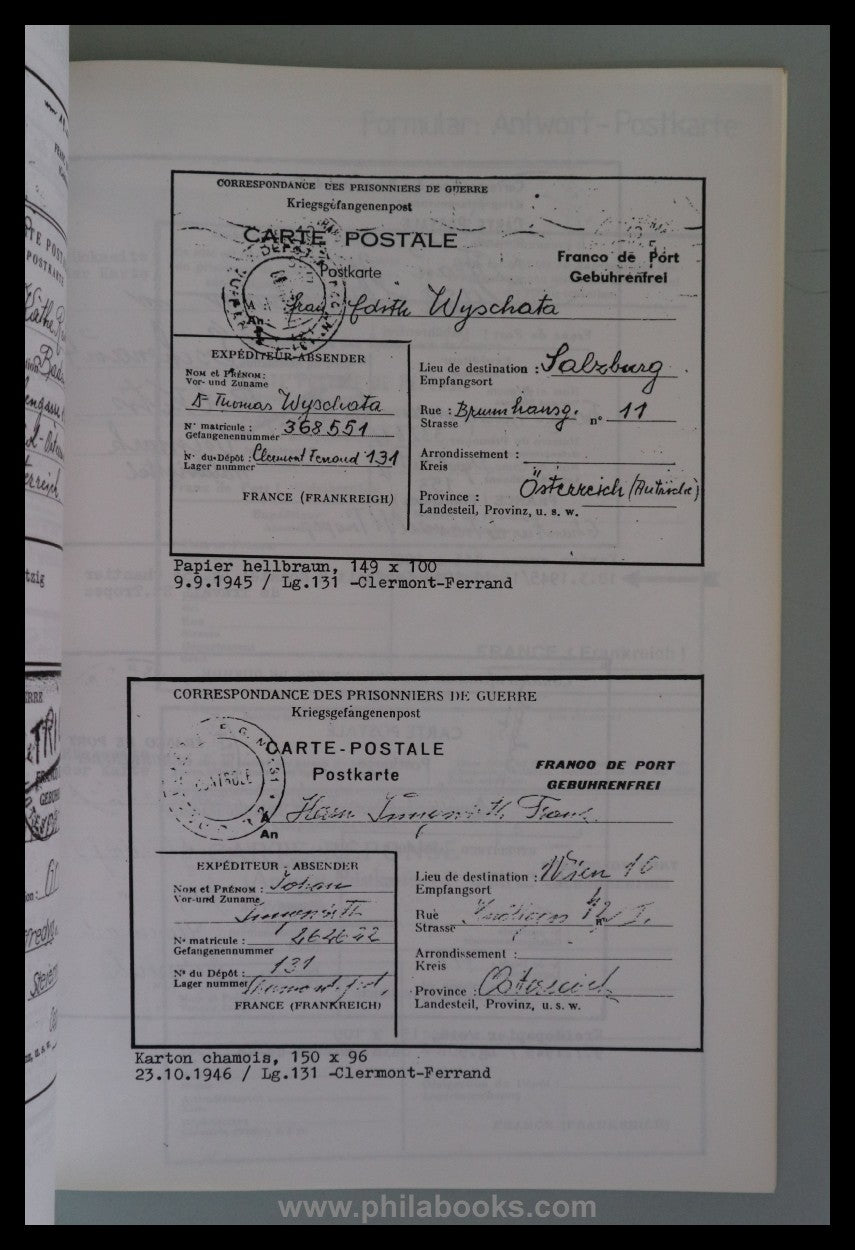 CORRESPONDANCE DES PRISONNIERS DE GUERRE
Kriegsgefangenenpost
CARTE POSTALE
Postkarte
Franco de Port
Gebuhrenfrei
An
Frau Edith Wyschata
EXPÉDITEUR-ABSENDER
Nom et Prénom:
Vor- und Zuname
Dr Thomas Wyschata
N° matricule : 368551
Gefangenennummer
N° du Dépôt : Clermont Ferrand 131
Lager nummer
FRANCE (FRANKREIGH)
Lieu de destination : Salzburg
Empfangsort
Rue : Brunnhausg. n° 11
Strasse
Arrondissement :
Kreis
Province : Österreich (Autriche)
Landesteil, Provinz, u. s. w.
Papier hellbraun, 149 x 100
9.9.1945 / Lg.131 -Clermont-Ferrand
CORRESPONDANCE DES PRISONNIERS DE GUERRE
Kriegsgefangenenpost
CARTE-POSTALE
Postkarte
FRANCO DE PORT
GEBUHRENFREI
CONTROLE
An
Herrn Franz
EXPÉDITEUR - ABSENDER
Nom et Prénom : Johan
Vor-und Zuname
N° matricule :
Gefangenennummer
N° du Dépôt : 131
Lager nummer
FRANCE (FRANKREICH)
Lieu de destination : Wien 10
Empfangsort
Rue
Strasse
Arrondissement :
Kreis
Province : Österreich
Landesteil, Provinz, u. s. w.
Karton chamois, 150 x 96
23.10.1946 / Lg.131 -Clermont-Ferrand
www.philabooks.com